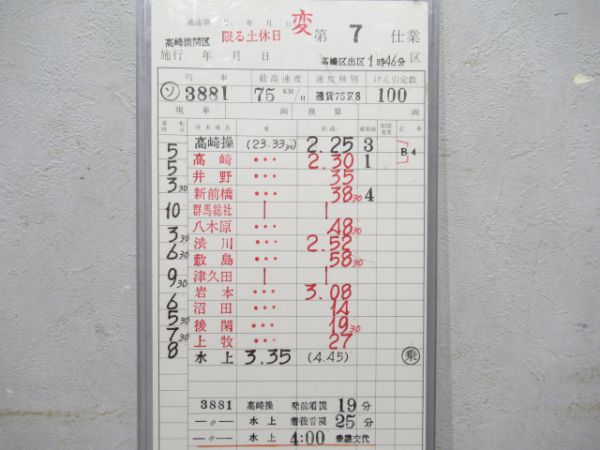 達達第 号 年 月 日
高崎機関区 限る土休日 変 第 7 仕業
施行 年 月 日 高機区出区 1時46分 区
列車 最高速度 速度種別 けん引定数
ソ 3881 75 KM/H 通貨75雷8 100
現車 両 換算 両
停車場名 着 発(通) 着発線 制限速度 記事
高崎操 (23.33 30) 2.25 3
5 高崎 ••• 2.30 1 B4
5 井野 ••• 35
3 30 新前橋 ••• 38 30 4
群馬総社 | |
10 八木原 ••• 48 30
3 30 渋川 ••• 2.52
6 30 敷島 ••• 58 30
津久田 | |
9 30 岩本 ••• 3.08
6 沼田 ••• 14
5 30 後閑 ••• 19 30
7 30 上牧 ••• 27
8 水上 3.35 (4.45) 乗
3881 高崎操 発前看視 19分
―〃― 水上 着後看視 25分
―〃― 水上 4:00 乗継交代